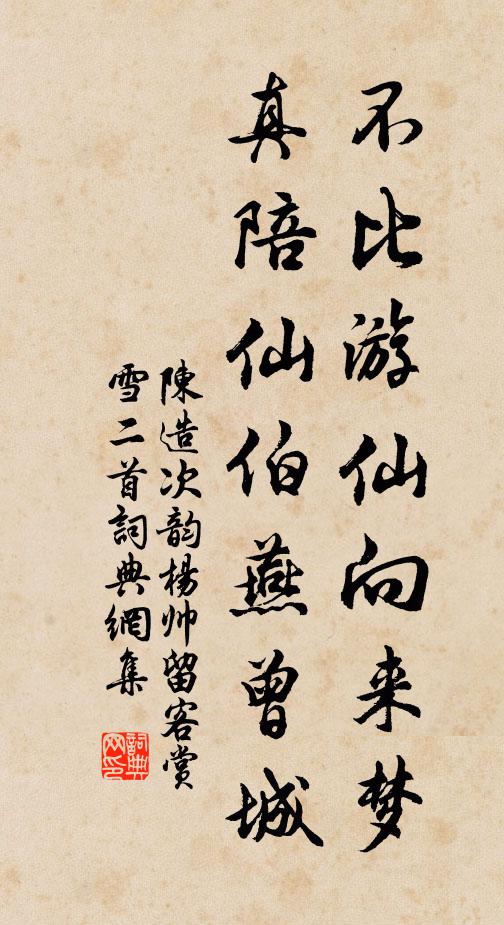 不比游仙向来梦
真陪仙伯燕曾城
陳造次韵楊帅留客赏
雪二首詞典網集
詞典网印